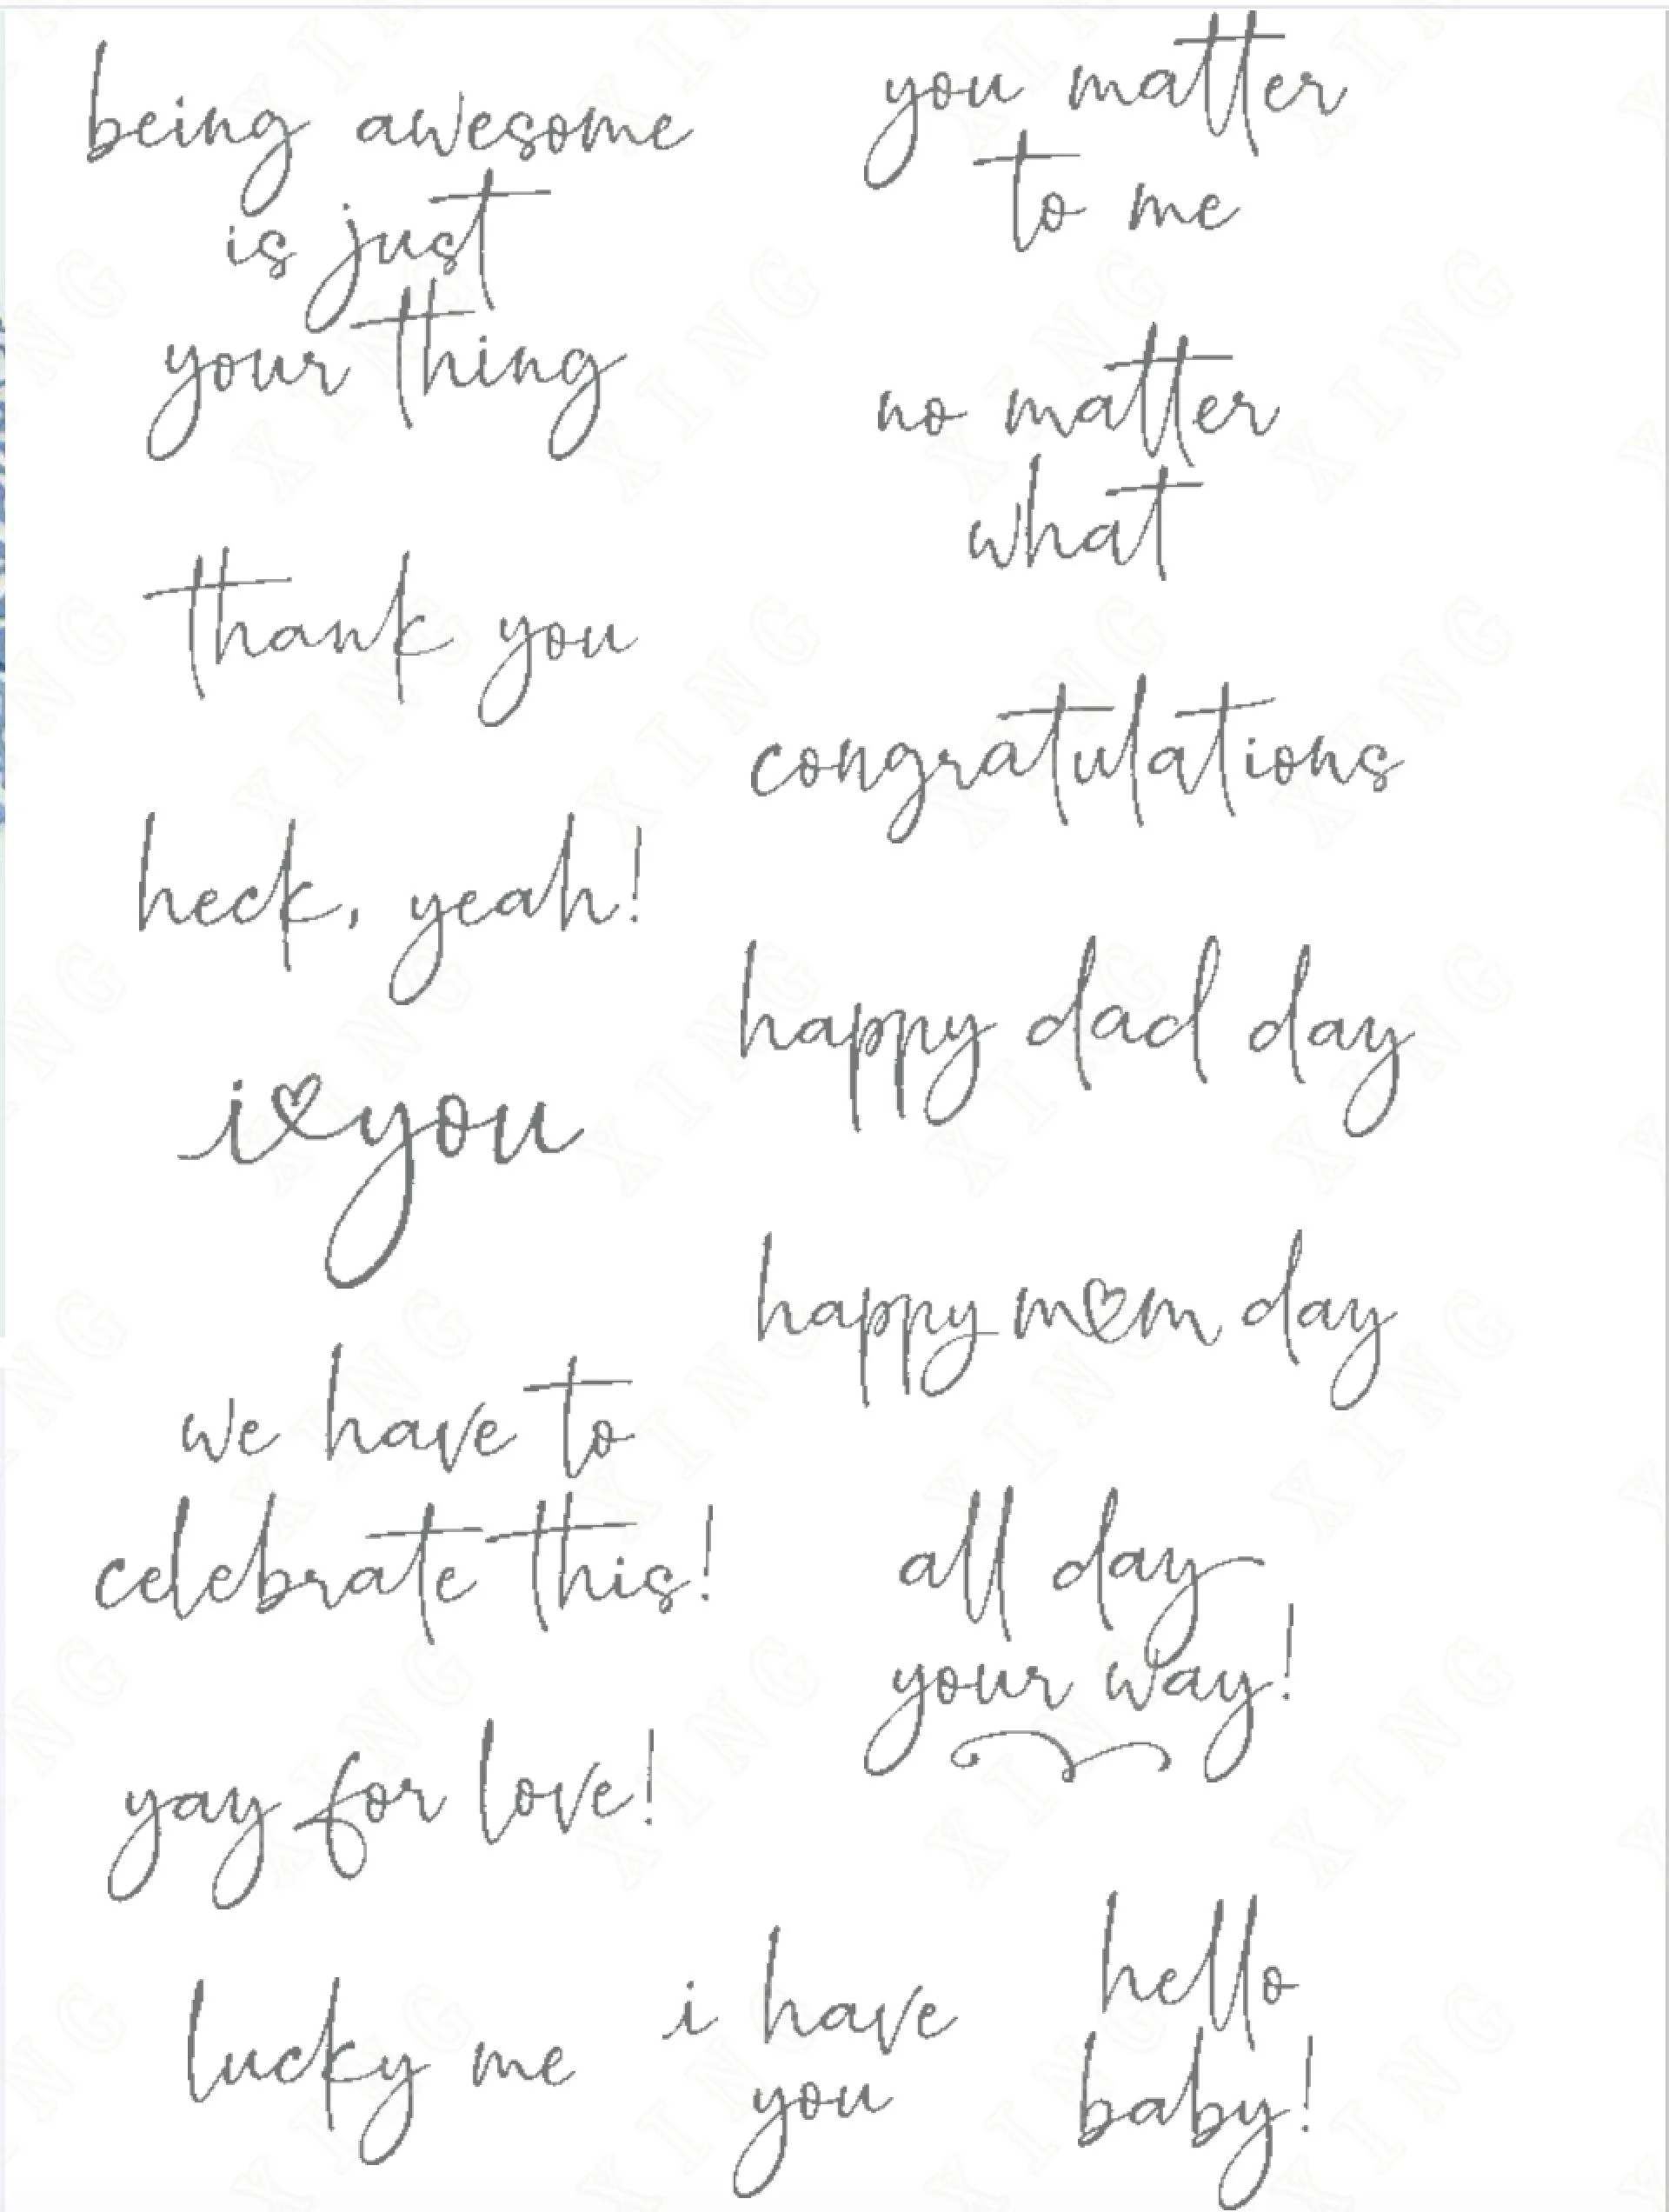 being awesome
is just
your thing
thank you
heck, yeah!
i♡you
we have to
celebrate this!
yay for love!
lucky me
you matter
to me
no matter
what
congratulations
happy dad day
happy m♡m day
all day
your way!
i have
you
hello
baby!
XING